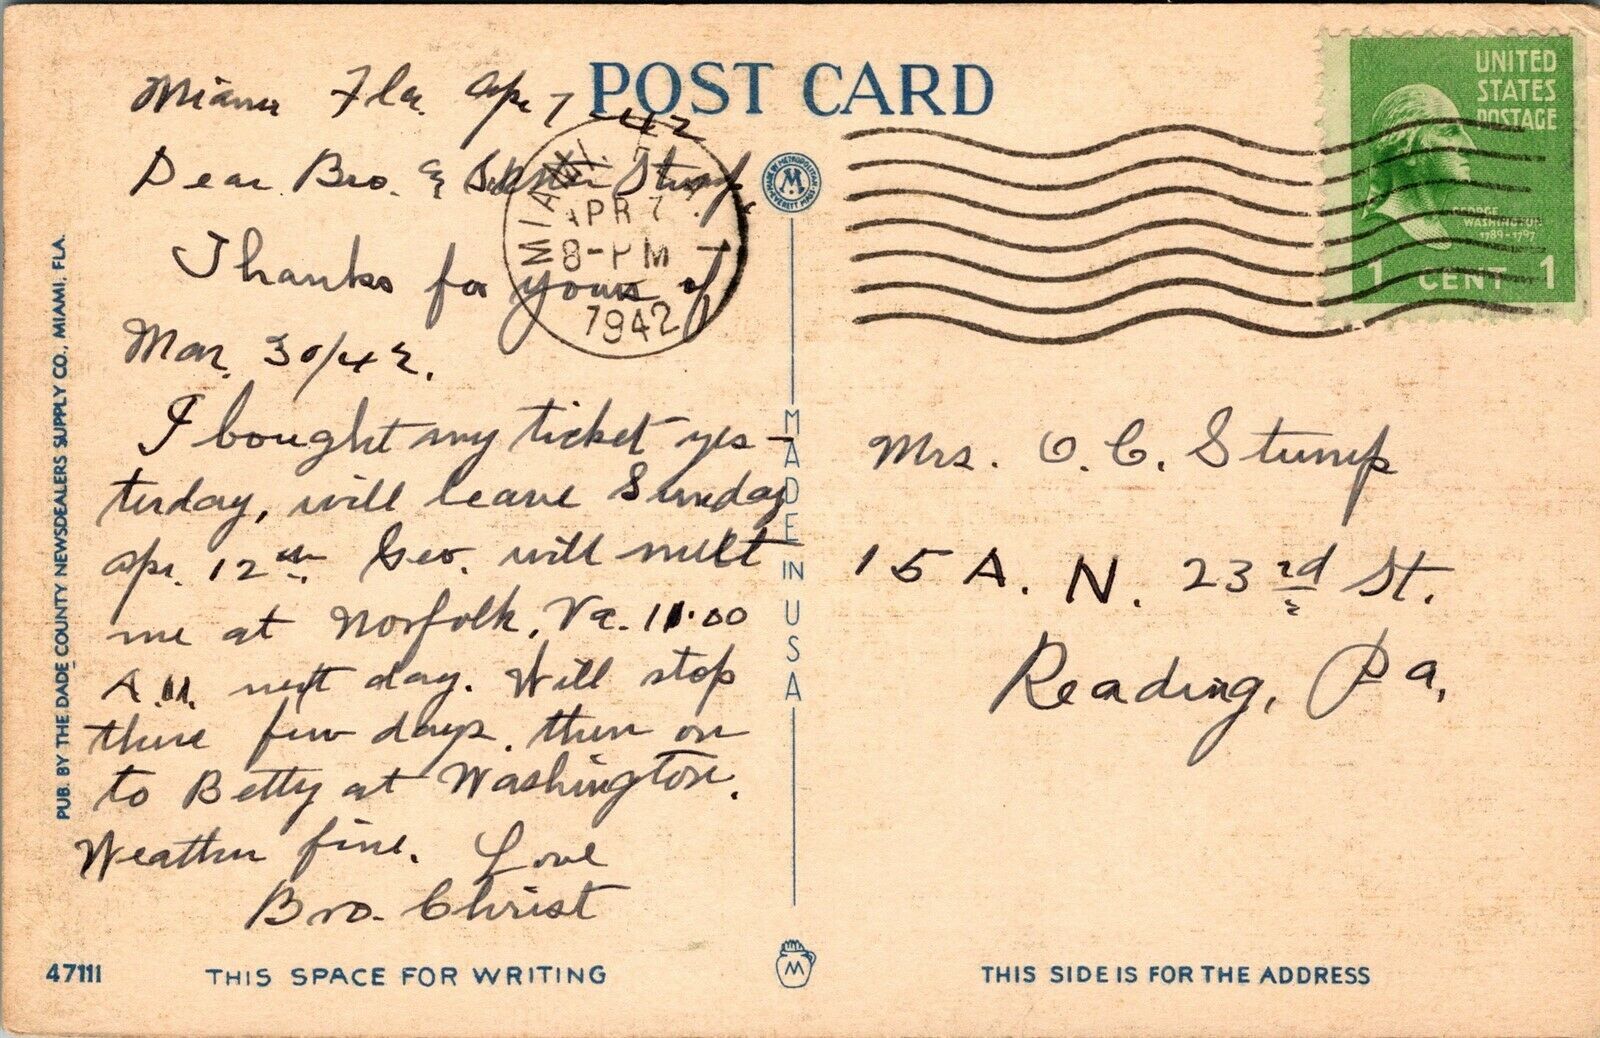 POST CARD
Miami Fla. Apr 7 - 42
Dear Bro. & Sister Stump,
Thanks for yours of
Mar. 30/42.
I bought my ticket yes-
terday, will leave Sunday
Apr. 12th. Geo. will meet
me at Norfolk, Va. 11.00
A.M. next day. Will stop
there few days, then on
to Betty at Washington.
Weather fine. Love
Bro. Christ
MIAMI, FLA.
APR 7
8-PM
1942
MADE BY METROPOLITAN
M
EVERETT MASS
MADE IN USA
M
UNITED
STATES
POSTAGE
GEORGE
WASHINGTON
1789-1797
1 CENT 1
Mrs. O. C. Stump
15 A. N. 23rd St.
Reading, Pa.
PUB. BY THE DADE COUNTY NEWSDEALERS SUPPLY CO., MIAMI, FLA.
47111
THIS SPACE FOR WRITING
THIS SIDE IS FOR THE ADDRESS